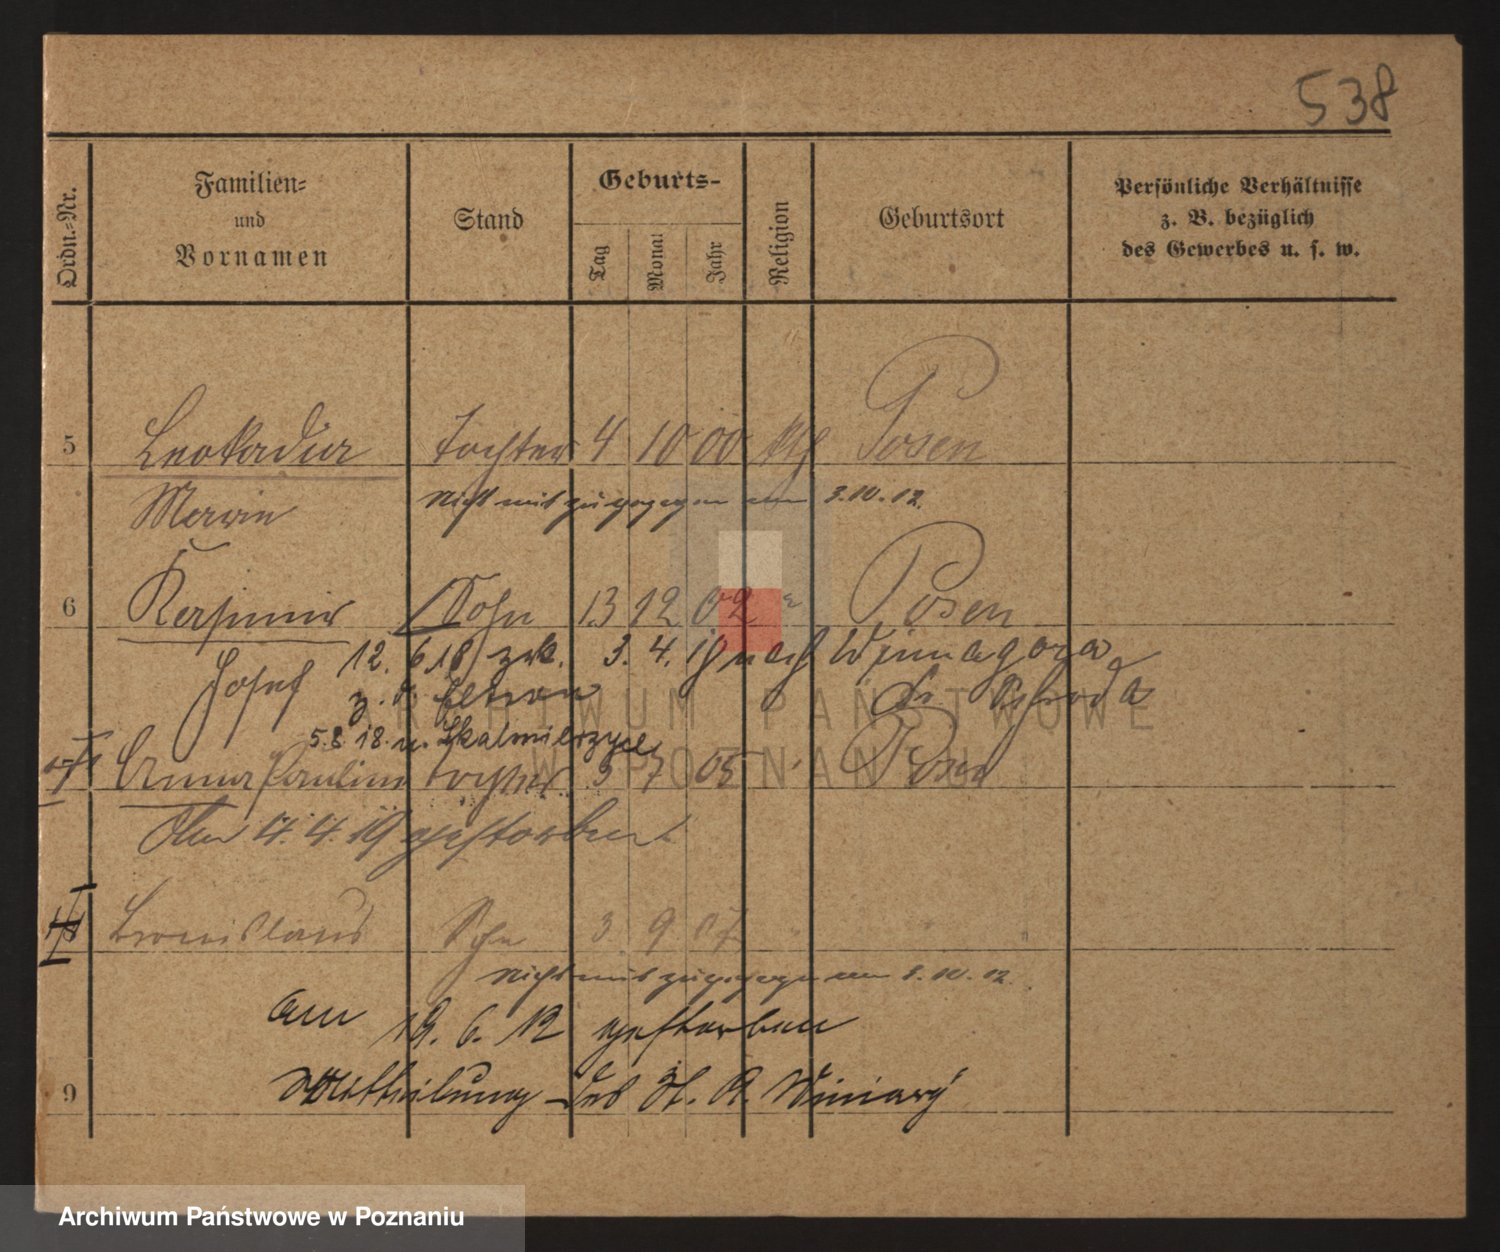 538
Ordn.-Nr. Familien- und Vornamen Stand Geburts- Tag Monat Jahr Religion Geburtsort Persönliche Verhältnisse z. B. bezüglich des Gewerbes u. s. w.
5 Leokadia Tochter 4 10 00 kth Posen
Maria nicht mit zugezogen am 3.10.12.
6 Kasimir Sohn 13 12 02 " Posen
Josef 12. 6 18 zrk. 3. 4. 18 nach Winnagora
z. d. Eltern Kr. Schroda
5.8.18. n. Skalmierzyce
Anna Pauline Tochter 5 7 05 " Posen
Am 4. 4. 19 gestorben
Bronislaus Sohn 3 9 07 " "
nicht mit zugezogen am 3.10.12.
am 19. 6. 12 gestorben
9 Mittheilung des St. A. Winiary
ARCHIWUM PAŃSTWOWE
W POZNANIU
Archiwum Państwowe w Poznaniu